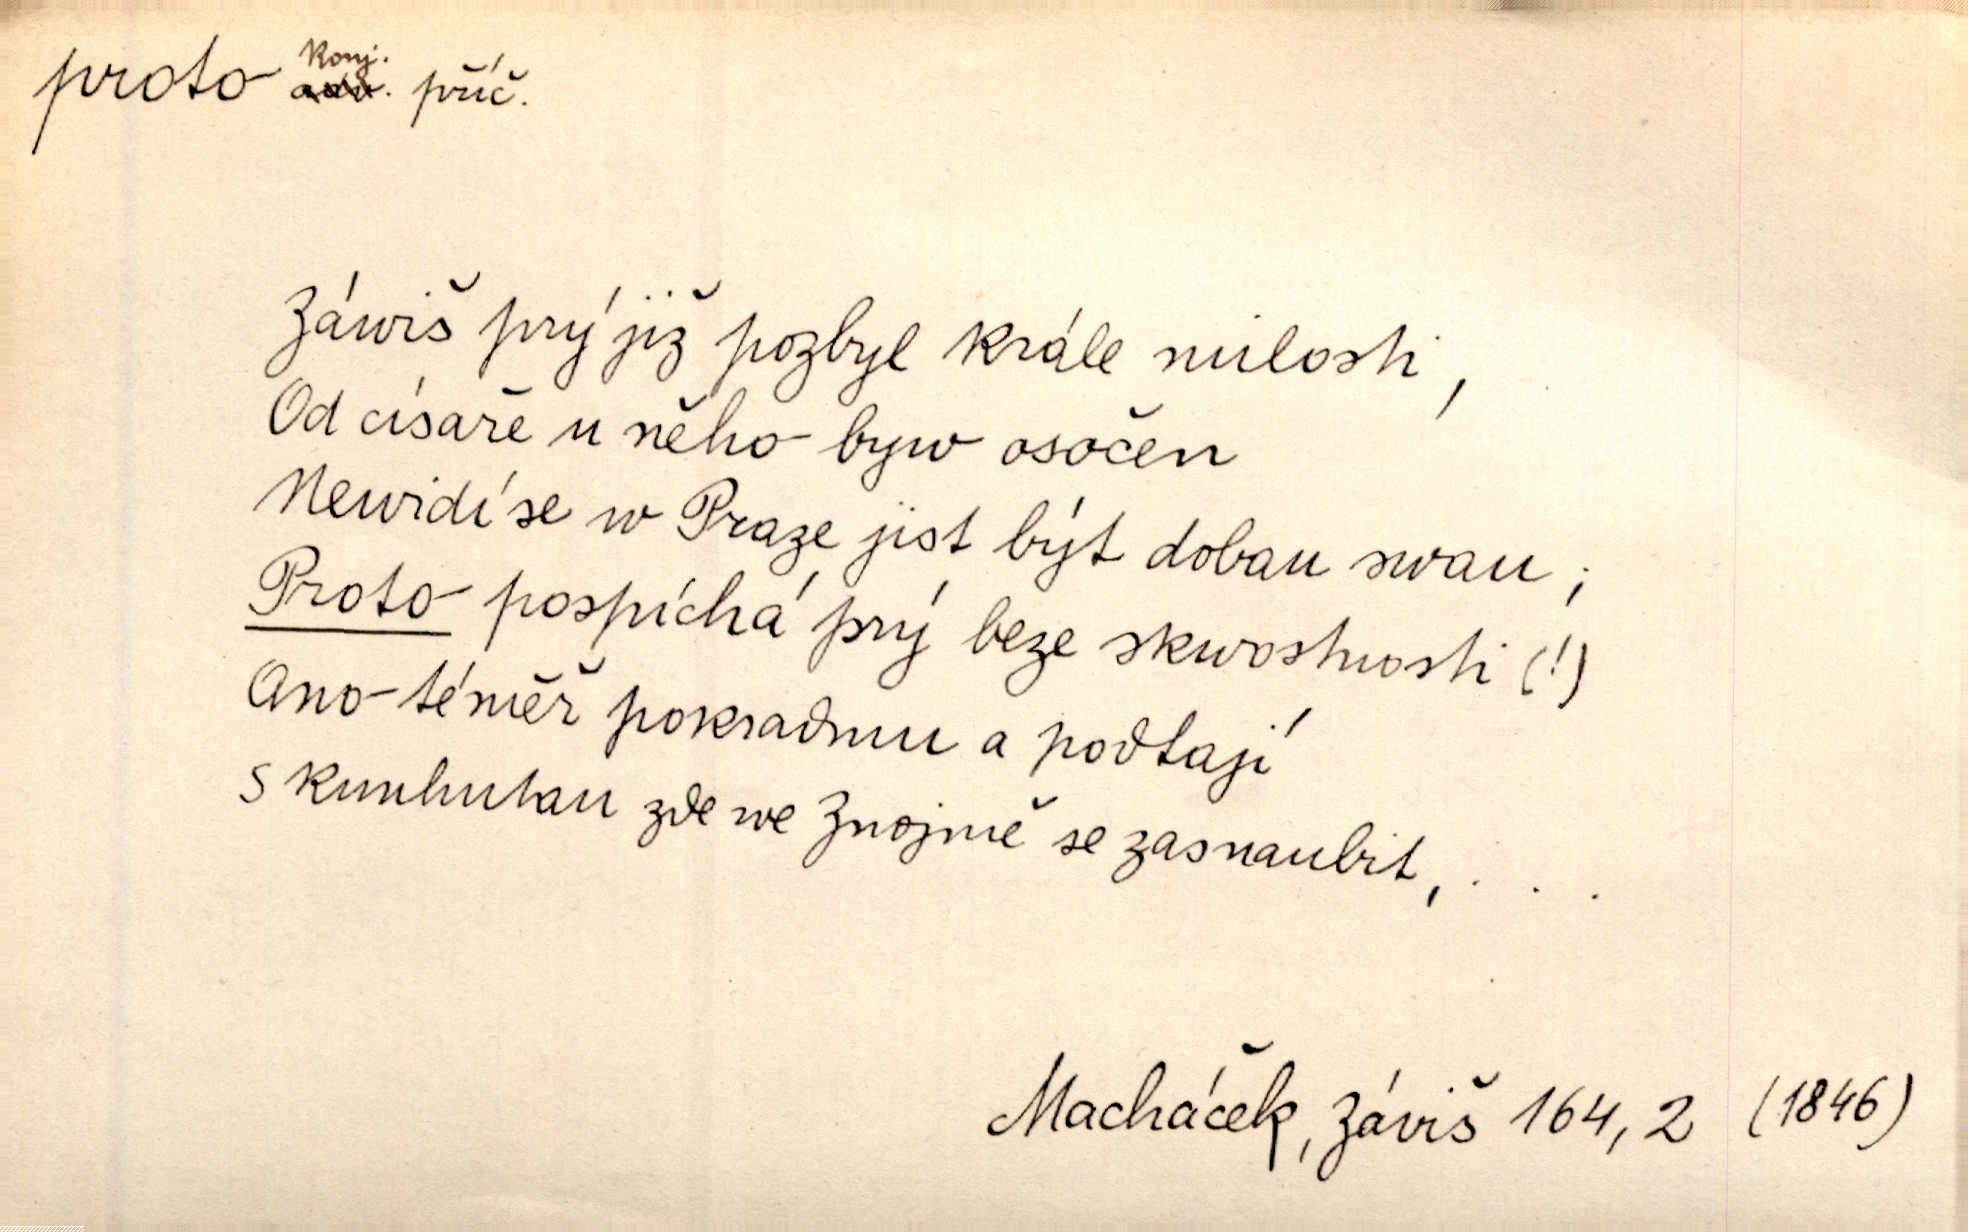 proto konj. adv. příč.
Záwiš prý již pozbyl krále milosti,
Od císaře u něho byw osočen
Newidí se w Praze jist být dobau swau;
Proto pospíchá prý beze skwostnosti (!)
Ano téměř pokradmu a podtají
S Kunhutau zde we Znojmě se zasnaubit, . . .
Macháček, Záviš 164, 2 (1846)